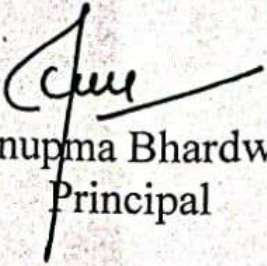 nupma Bhardw
Principal